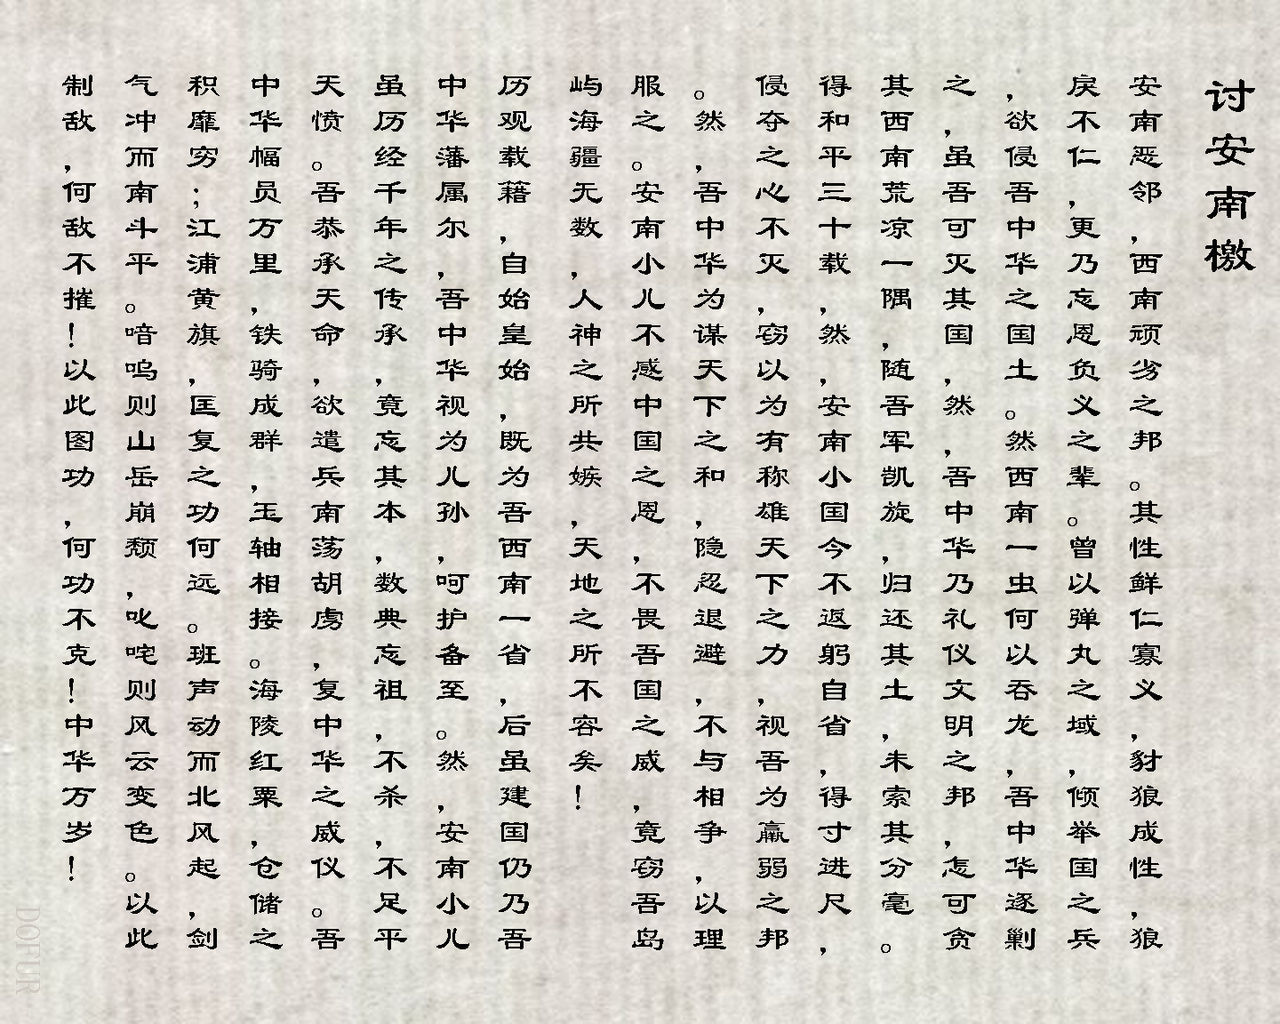 讨安南檄
安南恶邻，西南顽劣之邦。其性鲜仁寡义，豺狼成性，狼
戾不仁，更乃忘恩负义之辈。曾以弹丸之域，倾举国之兵
，欲侵吾中华之国土。然西南一虫何以吞龙，吾中华逐剿
之，虽吾可灭其国，然，吾中华乃礼仪文明之邦，怎可贪
其西南荒凉一隅，随吾军凯旋，归还其土，未索其分毫。
得和平三十载，然，安南小国今不返躬自省，得寸进尺，
侵夺之心不灭，窃以为有称雄天下之力，视吾为羸弱之邦
。然，吾中华为谋天下之和，隐忍退避，不与相争，以理
服之。安南小儿不感中国之恩，不畏吾国之威，竟窃吾岛
屿海疆无数，人神之所共嫉，天地之所不容矣！
历观载藉，自始皇始，既为吾西南一省，后虽建国仍乃吾
中华藩属尔，吾中华视为儿孙，呵护备至。然，安南小儿
虽历经千年之传承，竟忘其本，数典忘祖，不杀，不足平
天愤。吾恭承天命，欲遣兵南荡胡虏，复中华之威仪。吾
中华幅员万里，铁骑成群，玉轴相接。海陵红粟，仓储之
积靡穷；江浦黄旗，匡复之功何远。班声动而北风起，剑
气冲而南斗平。喑呜则山岳崩颓，叱咤则风云变色。以此
制敌，何敌不摧！以此图功，何功不克！中华万岁！
DOFUR